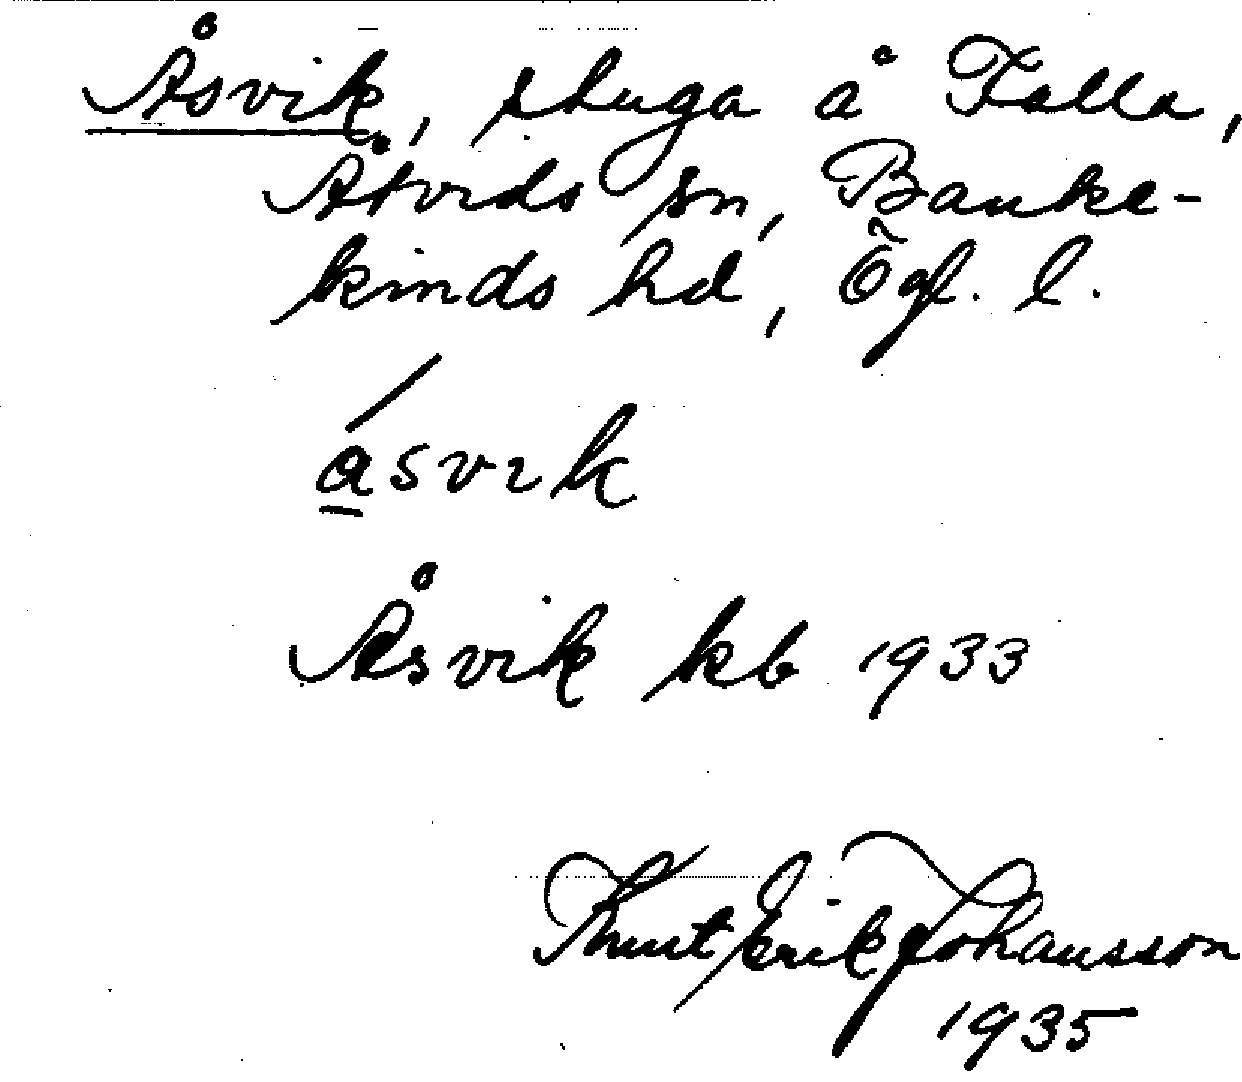 Åsvik, stuga å Falla,
Åtvids sn, Banke-
kinds hd, Ögl. l.
ásvik
Åsvik kb 1933
Knut Erik Johansson
1935